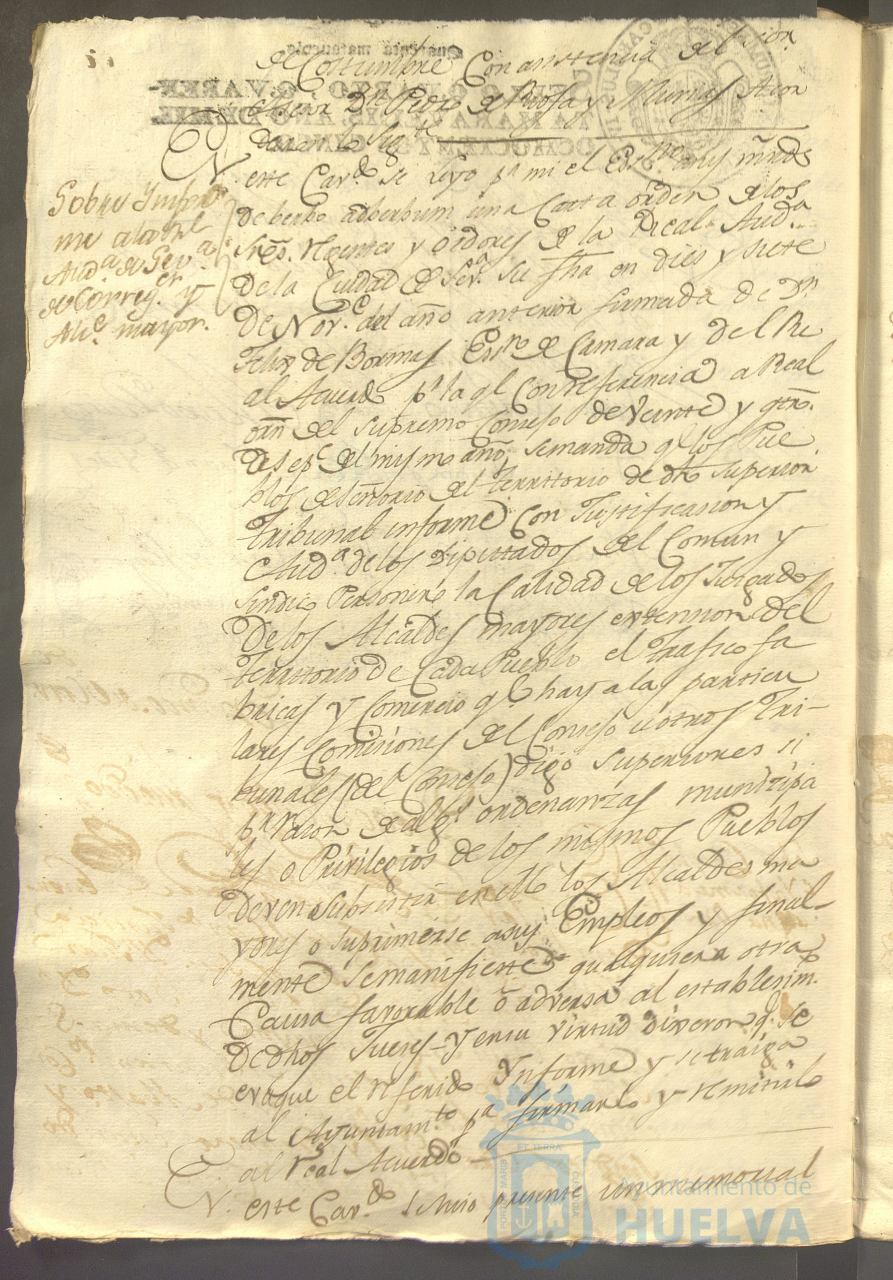 de Costumbre Con asistencia del señor
Dn. Pedro de Rioja y Acor
daron lo Sigte.
En este Cavdo. se Leyó pr. mi el Essno.
de berbo adberbum una Carta orden de los
Sres. Regentes y oydores de la Real Auda.
de la Ciudad de Seva. su fha en dies y siete
de Nove. del año anterior firmada de Dn.
Felix de Bormas Essno. de Camara y del Re
al Acuerdo pr. la ql. Con referencia a Real
orñ del supremo Consejo de Veinte y qtro.
de sepe. del mismo año, se manda qe. los Pue
blos de señorio del territorio de dho. superior
Tribunal informe Con Justificasion y
Auda. de los Diputados del Comun y
Sindico Personero la Calidad de los Jusgados
De los Alcaldes mayores extension del
territorio de Cada Pueblo el trafico fa
bricas y Comercio qe. hay a las particu
lares Comisiones del Consejo u otros Tri-
bunales (del Consejo) digo superiores si
pr. razon de algs. ordenanzas munizipa
les o Privilegios de los mismos Pueblos
deven Subsistir en ellos los Alcaldes ma
yores o suprimirse asus Empleos y final-
mente se manifieste qualquiera otra
Causa favorable ó adversa al establecim.
De dhos Jueses - Y en su Virtud dixeron qe. se
evaque el referido Ynforme y se traiga
al Ayuntamto. pa. firmarlo y remitirlo
al Real Acuerdo
En este Cavdo. se hizo presente un memorial
Sobre Ynfor
me a la Rl.
Auda. de Seva.
de Corregor. y
Alce. mayor.
Quarenta maravedis
Ayuntamiento de
HUELVA